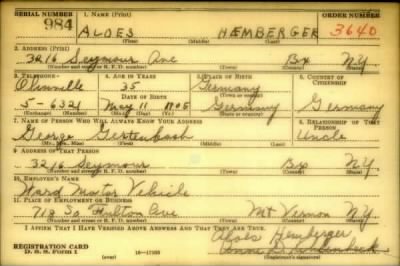 SERIAL NUMBER 1. NAME (Print) ORDER NUMBER
984 ALOES HEMBERGER 3640
(First) (Middle) (Last)
2. ADDRESS (Print)
3216 Seymour Ave Bx NY
(Number and street or R. F. D. number) (Town) (County) (State)
3. TELEPHONE 4. AGE IN YEARS 5. PLACE OF BIRTH 6. COUNTRY OF CITIZENSHIP
Olinville 35 Germany
DATE OF BIRTH (Town or county)
5-6321 May 11 1905 Germany Germany
(Exchange) (Number) (Mo.) (Day) (Yr.) (State or country)
7. NAME OF PERSON WHO WILL ALWAYS KNOW YOUR ADDRESS 8. RELATIONSHIP OF THAT PERSON
George Uncle
(Mr., Mrs., Miss) (First) (Middle) (Last)
9. ADDRESS OF THAT PERSON
3216 Seymour Bx NY
(Number and street or R. F. D. number) (Town) (County) (State)
10. EMPLOYER'S NAME
Ward Motor Vehicle
11. PLACE OF EMPLOYMENT OR BUSINESS
718 So Fulton Ave Mt Vernon NY
(Number and street or R. F. D. number) (Town) (County) (State)
I AFFIRM THAT I HAVE VERIFIED ABOVE ANSWERS AND THAT THEY ARE TRUE.
Aloes Hemberger
REGISTRATION CARD
D. S. S. Form 1 (over) 16-17105 (Registrant's signature)